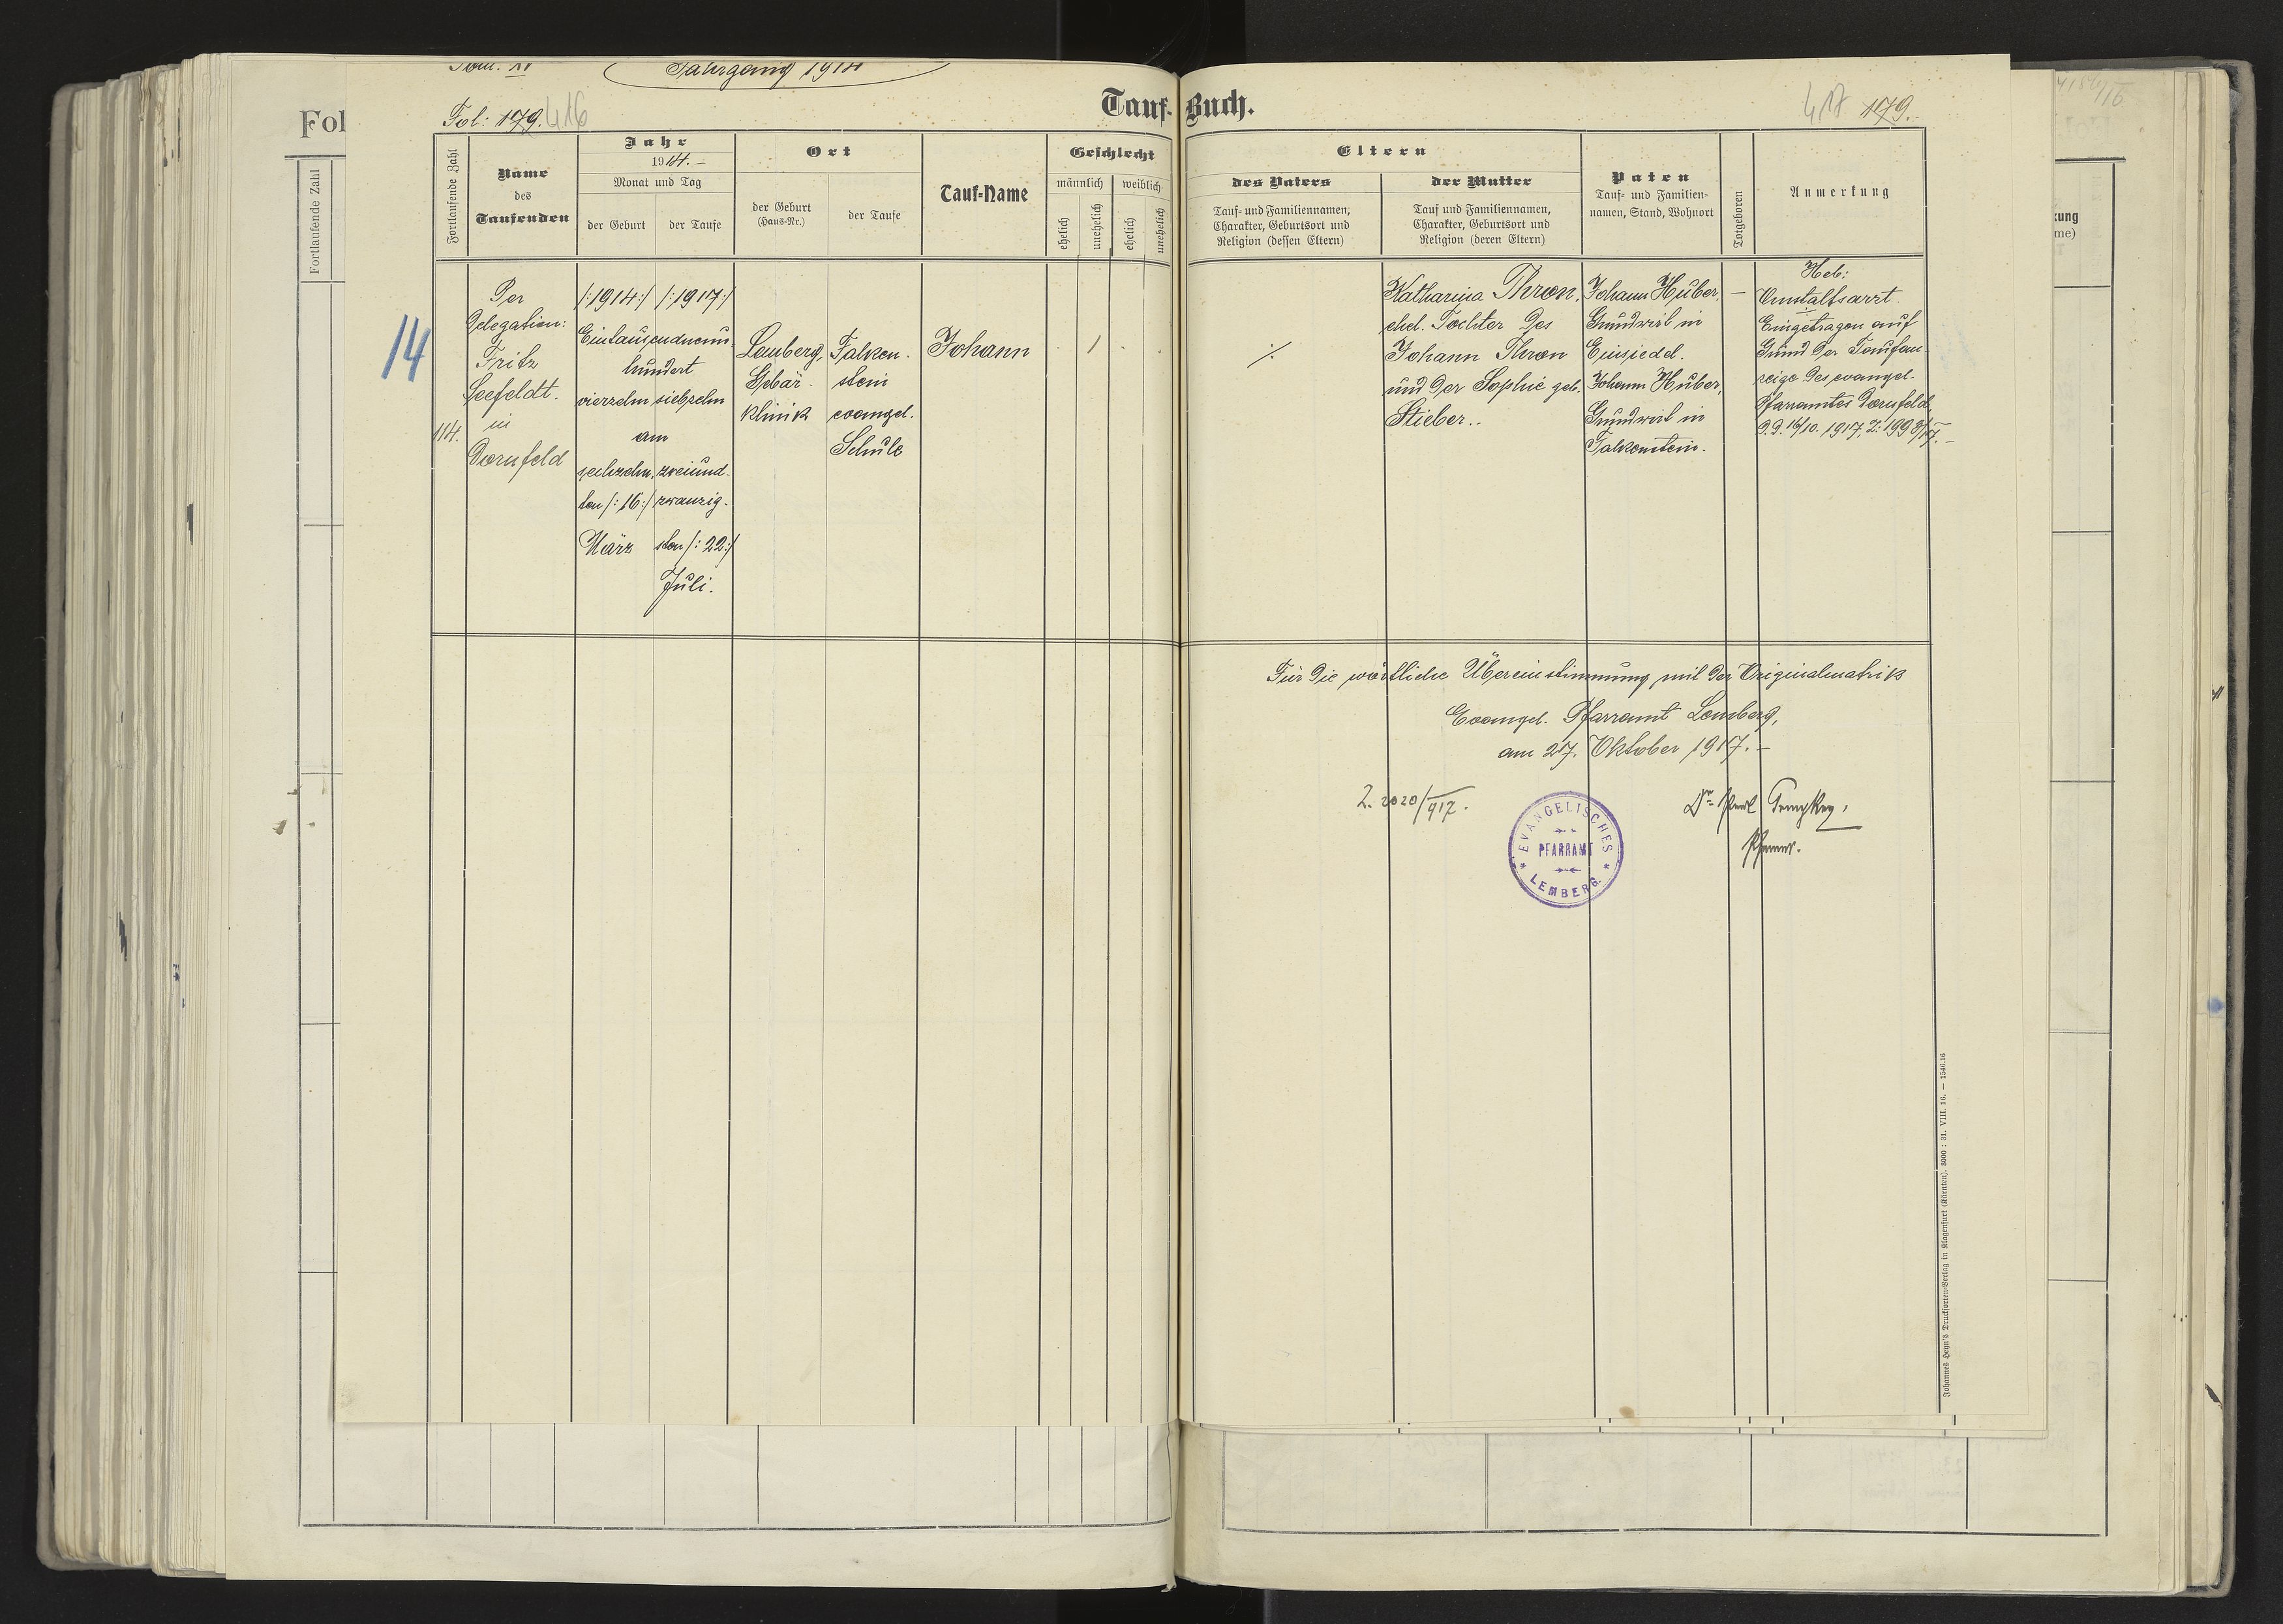 Tom. XI
Jahrgang 1914
Fol: 179. 416
Tauf-Buch.
417 179.
Fol
Fortlaufende Zahl
Fortlaufende Zahl
Name
des
Taufenden
Jahr
1914.–
Monat und Tag
der Geburt
der Taufe
Ort
der Geburt
(Haus-Nr.)
der Taufe
Tauf-Name
Geschlecht
männlich
weiblich
ehelich
unehelich
ehelich
unehelich
Eltern
des Vaters
Tauf- und Familiennamen,
Charakter, Geburtsort und
Religion (dessen Eltern)
der Mutter
Tauf und Familiennamen,
Charakter, Geburtsort und
Religion (deren Eltern)
Paten
Tauf- und Familien-
namen, Stand, Wohnort
Totgeboren
Anmerkung
kung
me)
14
114.
Per
Delegation:
Fritz
Seefeldt.
in
Dornfeld
/:1914:/ /:1917:/
Eintausendneun-
hundert
vierzehn siebzehn
am
sechzehn- zweiund-
ten /:16:/ zwanzig-
März sten /:22:/
Juli.
Lemberg,
Gebär-
klinik
Falken-
stein
evangel.
Schule
Johann
1
·/·
Katharina Thron,
ehel. Tochter des
Johann Thron
und der Sophie geb.
Stieber..
Johann Huber,
Grundwirt in
Einsiedel.
Johann Huber,
Grundwirt in
Falkenstein.
–
Heb:
Anstaltsarzt
Eingetragen auf
Grund der Taufan-
zeige des evangel.
Pfarramtes Dornfeld
d.d. 16/10. 1917, Z: 1998/17.–
Für die wörtliche Übereinstimmung mit der Originalmatrik
Evangel. Pfarramt Lemberg,
am 27. Oktober 1917.–
Z. 2020/917.
EVANGELISCHES
PFARRAMT
LEMBERG.
Dr.
Pfarrer.
Johannes Heyn's Drucksorten-Verlag in Klagenfurt (Kärnten). 3000 : 31. VIII. 16. — 1546.16